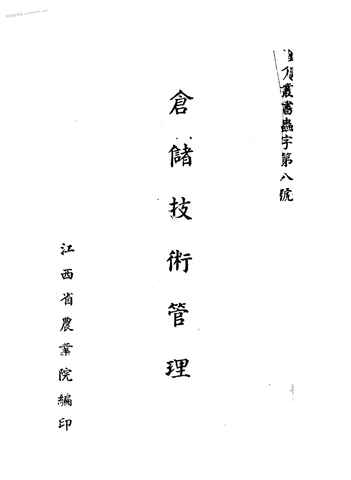 叢書蟲字第八號
倉儲技術管理
江西省農業院編印